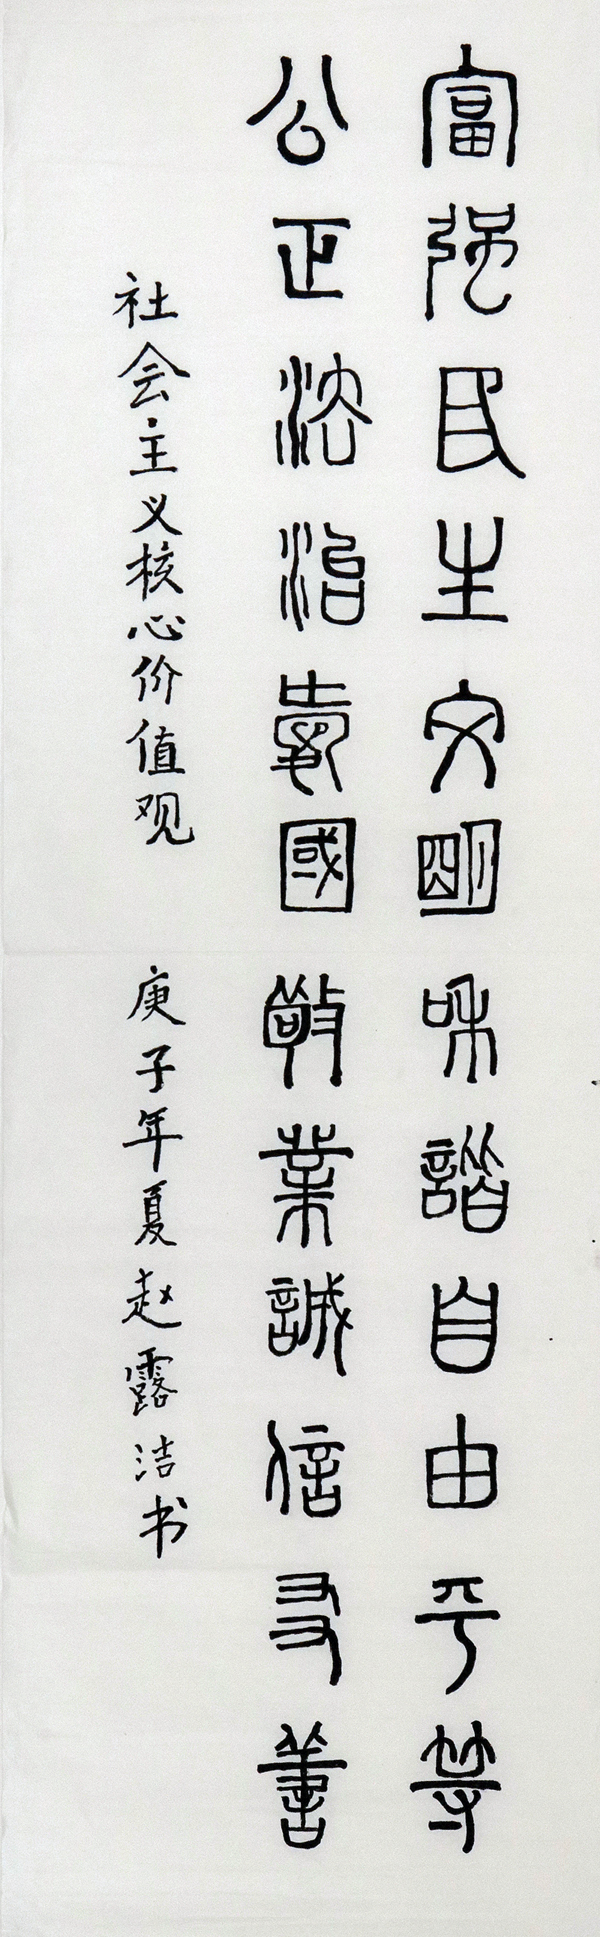 富强民主文明和諧自由平等
公正法治愛國敬業誠信友善
社会主义核心价值观 庚子年夏赵露洁书